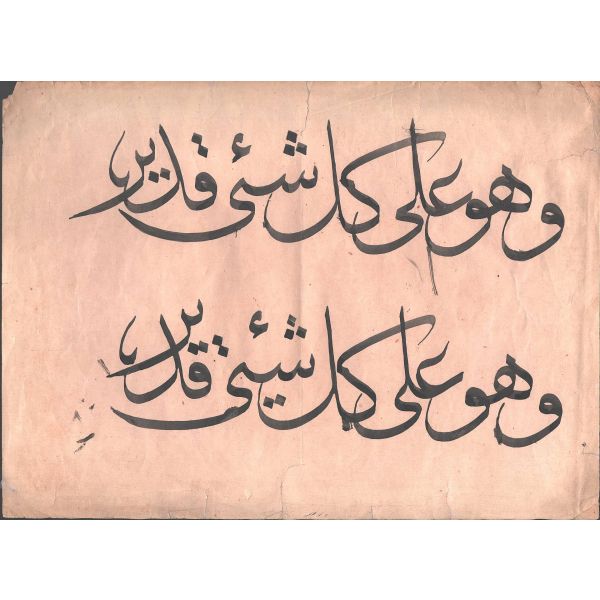 وهو علی كل شئی قدیر
وهو علی كل شئی قدیر